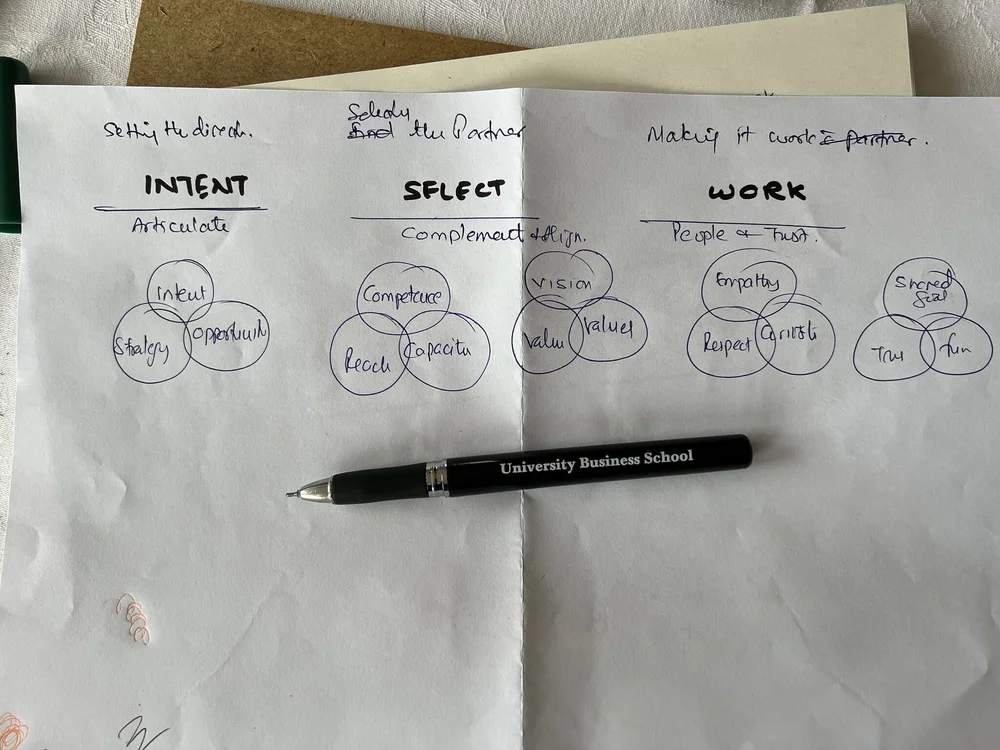 Setting the direcn.
Select
the Partner
Making it work
INTENT
SELECT
WORK
Articulate
Complement & Align.
People & Trust.
Intent
Strategy
Opportunity
Competence
Reach
Capacity
VISION
Value
Values
Empathy
Respect
Shared
Goal
Fun
University Business School